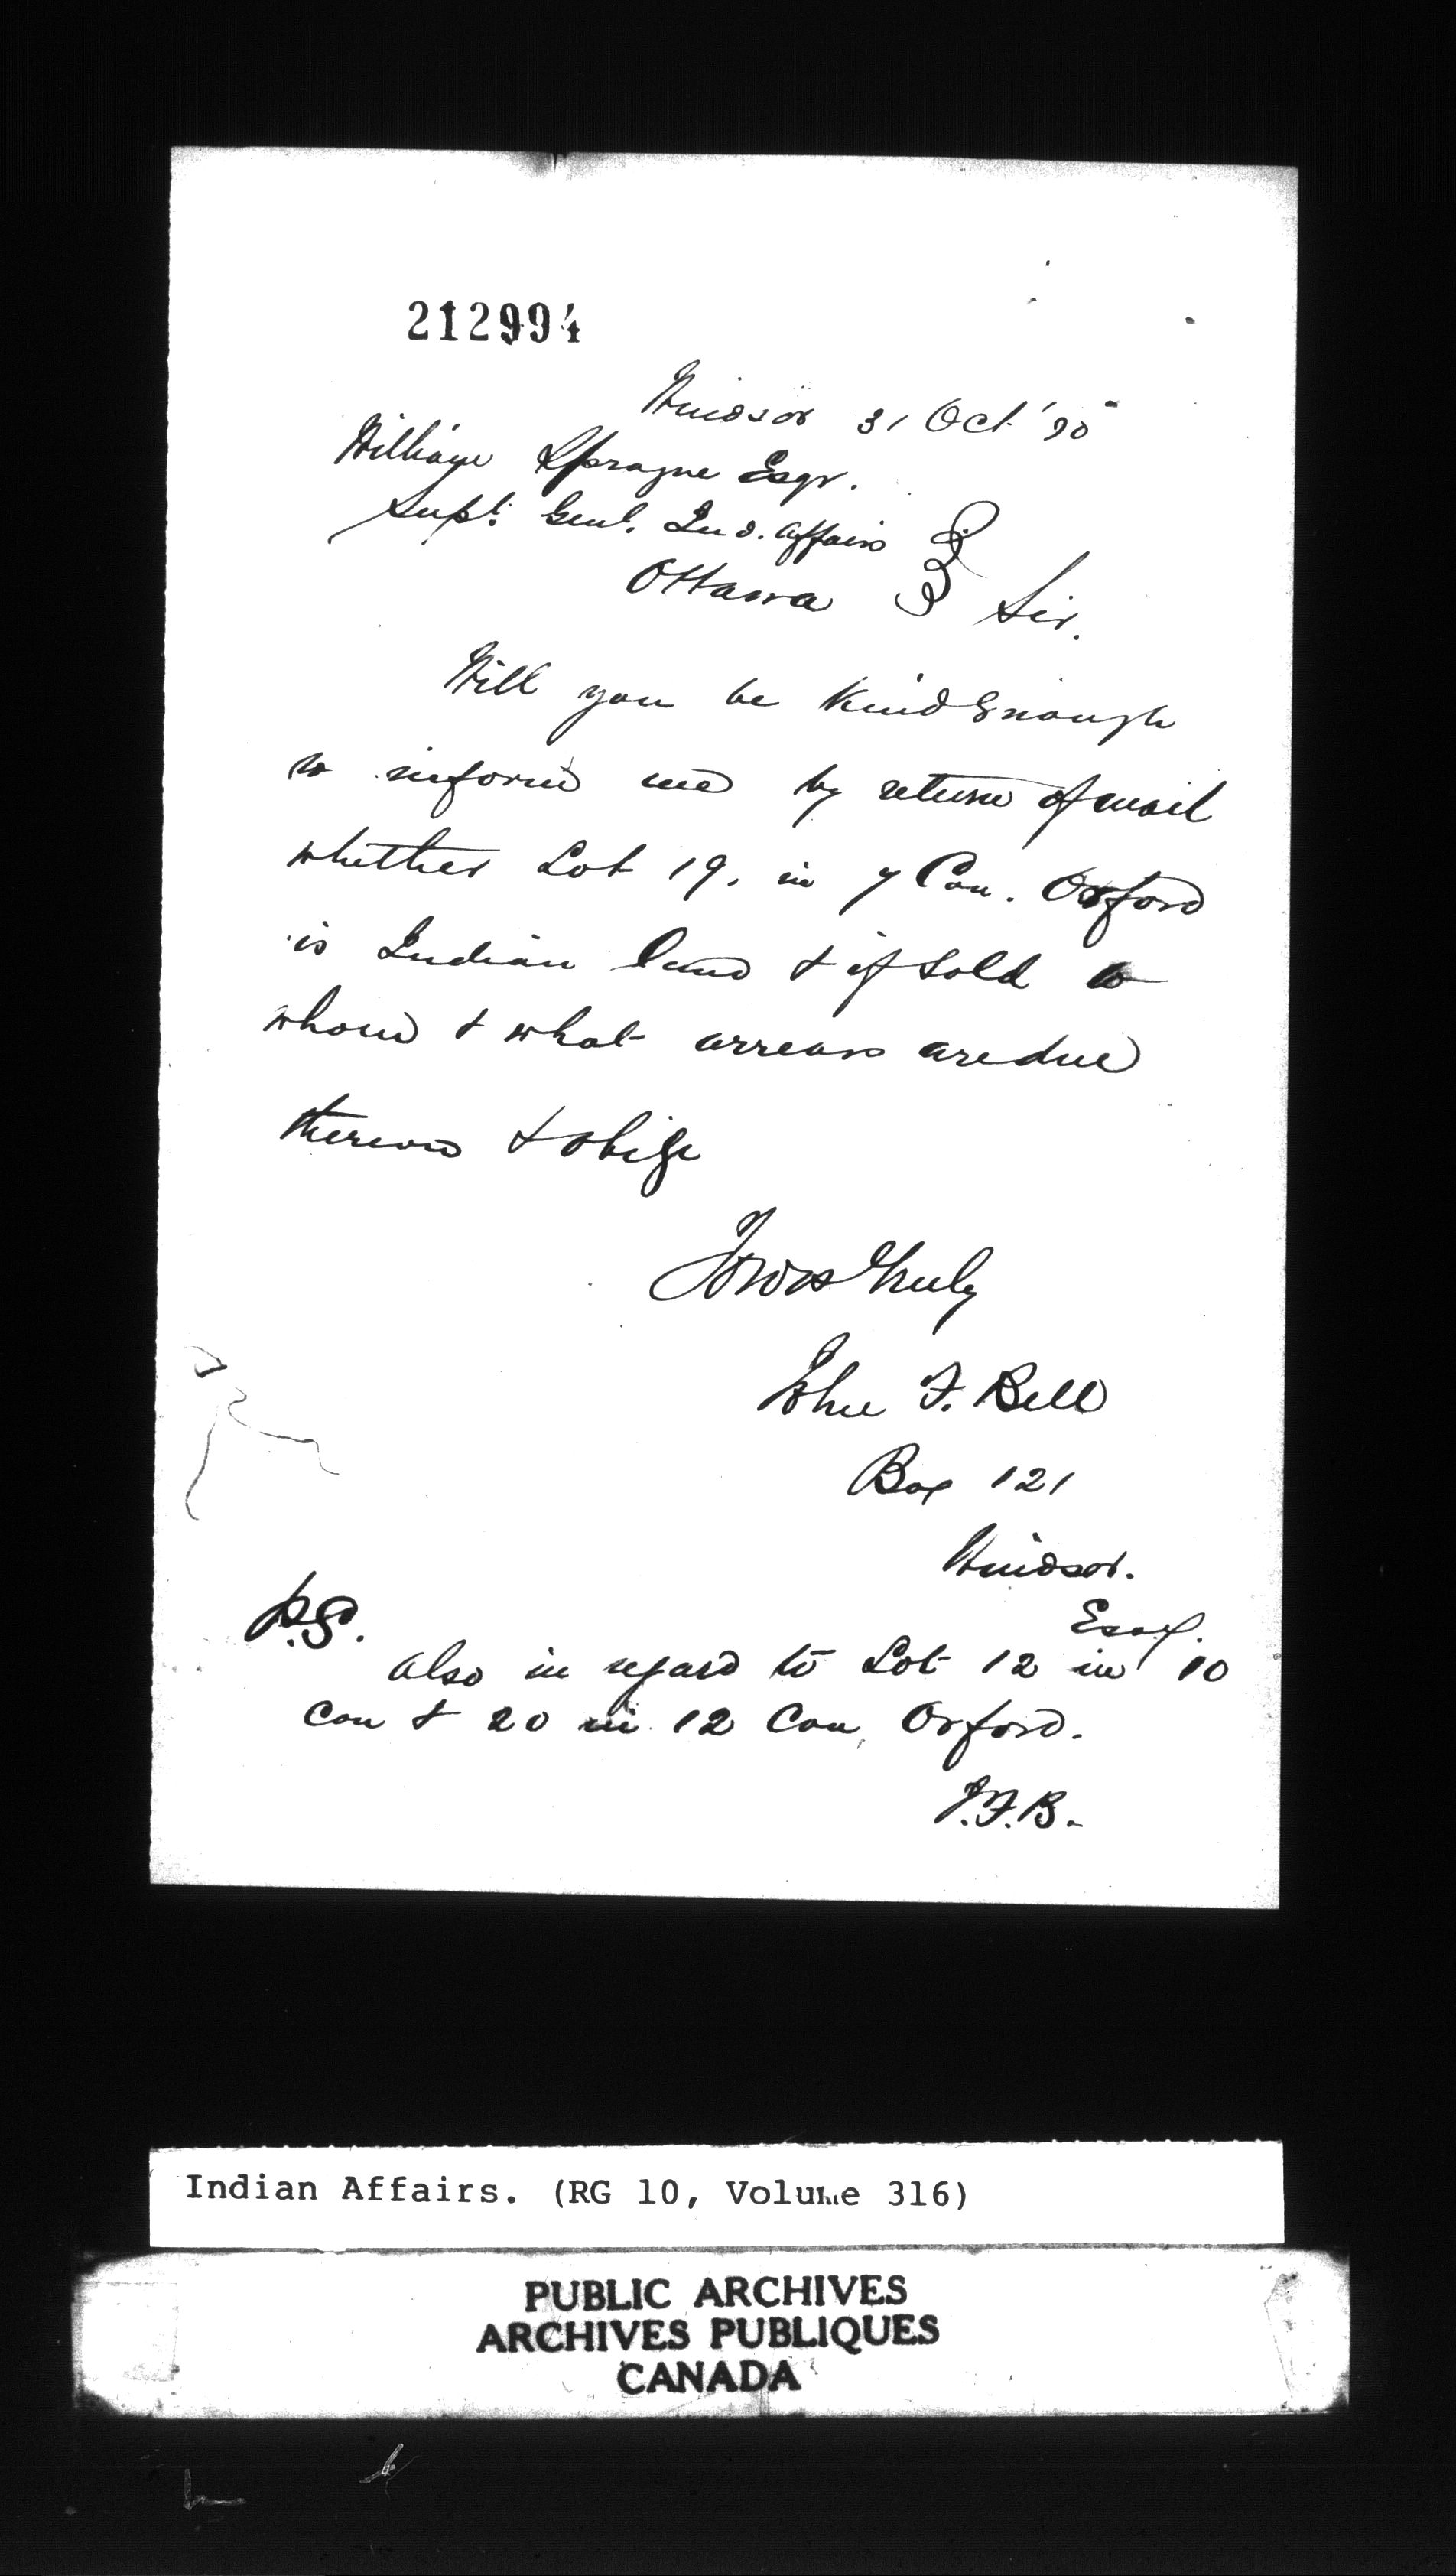 212994
Windsor 31 Oct '70
William Sprague Esqr.
Supt. Genl. Ind. Affairs
Ottawa Sir.
Will you be Kind Enough
to inform me by return of mail
whether Lot 19. in 7 Con. Orford
is Indian land & if Sold to
whom & what arrears are due
thereon & oblige
Yours Truly
John F. Bell
Box 121
Windsor.
P.S. Essex.
also in regard to Lot 12 in 10
Con & 20 in 12 Con. Orford.
J.F.B.
Indian Affairs. (RG 10, Volume 316)
PUBLIC ARCHIVES
ARCHIVES PUBLIQUES
CANADA